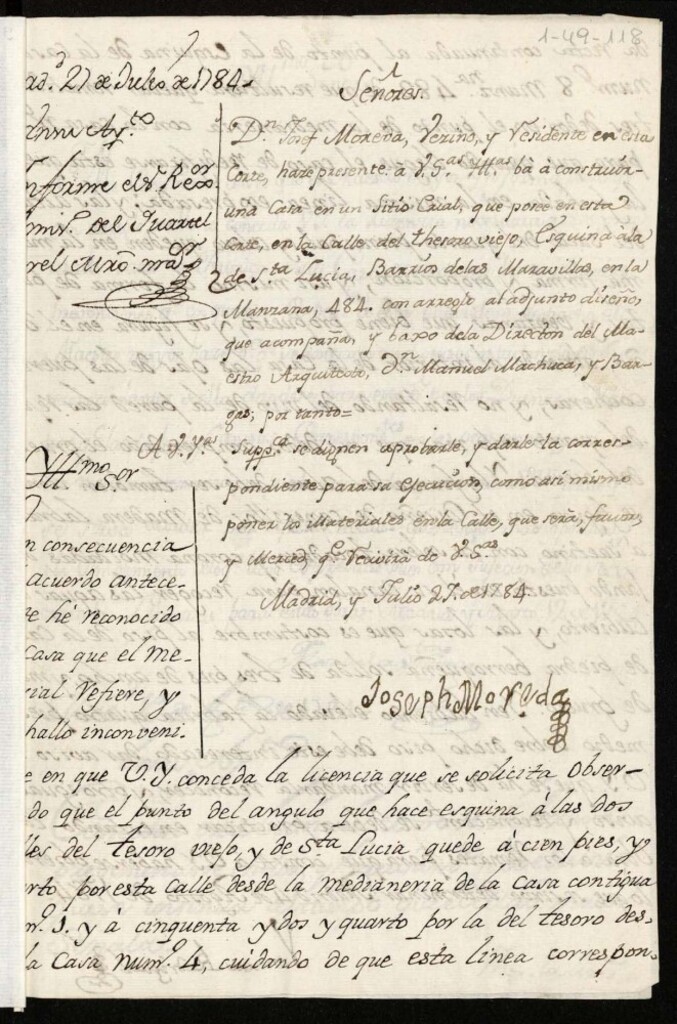 1-49-118
ad.ᵈ 27 de Julio de 1784
Yllmo Ay.ᵗᵒ
nforme el S.ʳ Rex.ᵒʳ
mis.º del Quartel
Señores.
D.ⁿ Josef Moreda, Vezino, y Residente en esta
Corte, haze presente à V.S.ᵃˢ Yll.ᵃˢ bà à construir
una Casa en un Sitio Erial, que poseè en esta
Corte, en la Calle del thesoro viejo, Esquina àla
de S.ᵗᵃ Lucia, Barrios delas Maravillas, en la
Manzana, 484. con arreglo al adjunto diseño,
que acompaña, y baxo dela Direcion del Ma-
estro Arquitecto, d.ⁿ Manuel Machuca, y Bar-
gas; por tanto=
A V. Y.ˢ Supp.ᶜᵃ se dignen aprobarle, y darle la corres-
pondiente para su ejecucion, como asi mismo
poner los Materiales en la Calle, que serà, favor,
y Merced, q.ᵉ Rezivirà de V.S.ᵃˢ
Madrid, y Julio 27. de 1784.
Joseph Moreda
Yllmo S.ᵒʳ
n consecuencia
acuerdo antece-
te hé reconocido
casa que el me-
rial refiere, y
hallo inconveni.
e en que V.Y. conceda la licencia que se solicita obser-
do que el punto del angulo que hace esquina à las dos
lles del tesoro viejo, y de S.ᵗᵃ Lucia quede à cien pies, y
rto por esta Calle desde la medianeria de la casa contigua
m.º 1. y à cinquenta y dos y quarto por la del tesoro des-
la Casa num.º 4, cuidando de que esta linea correspon-